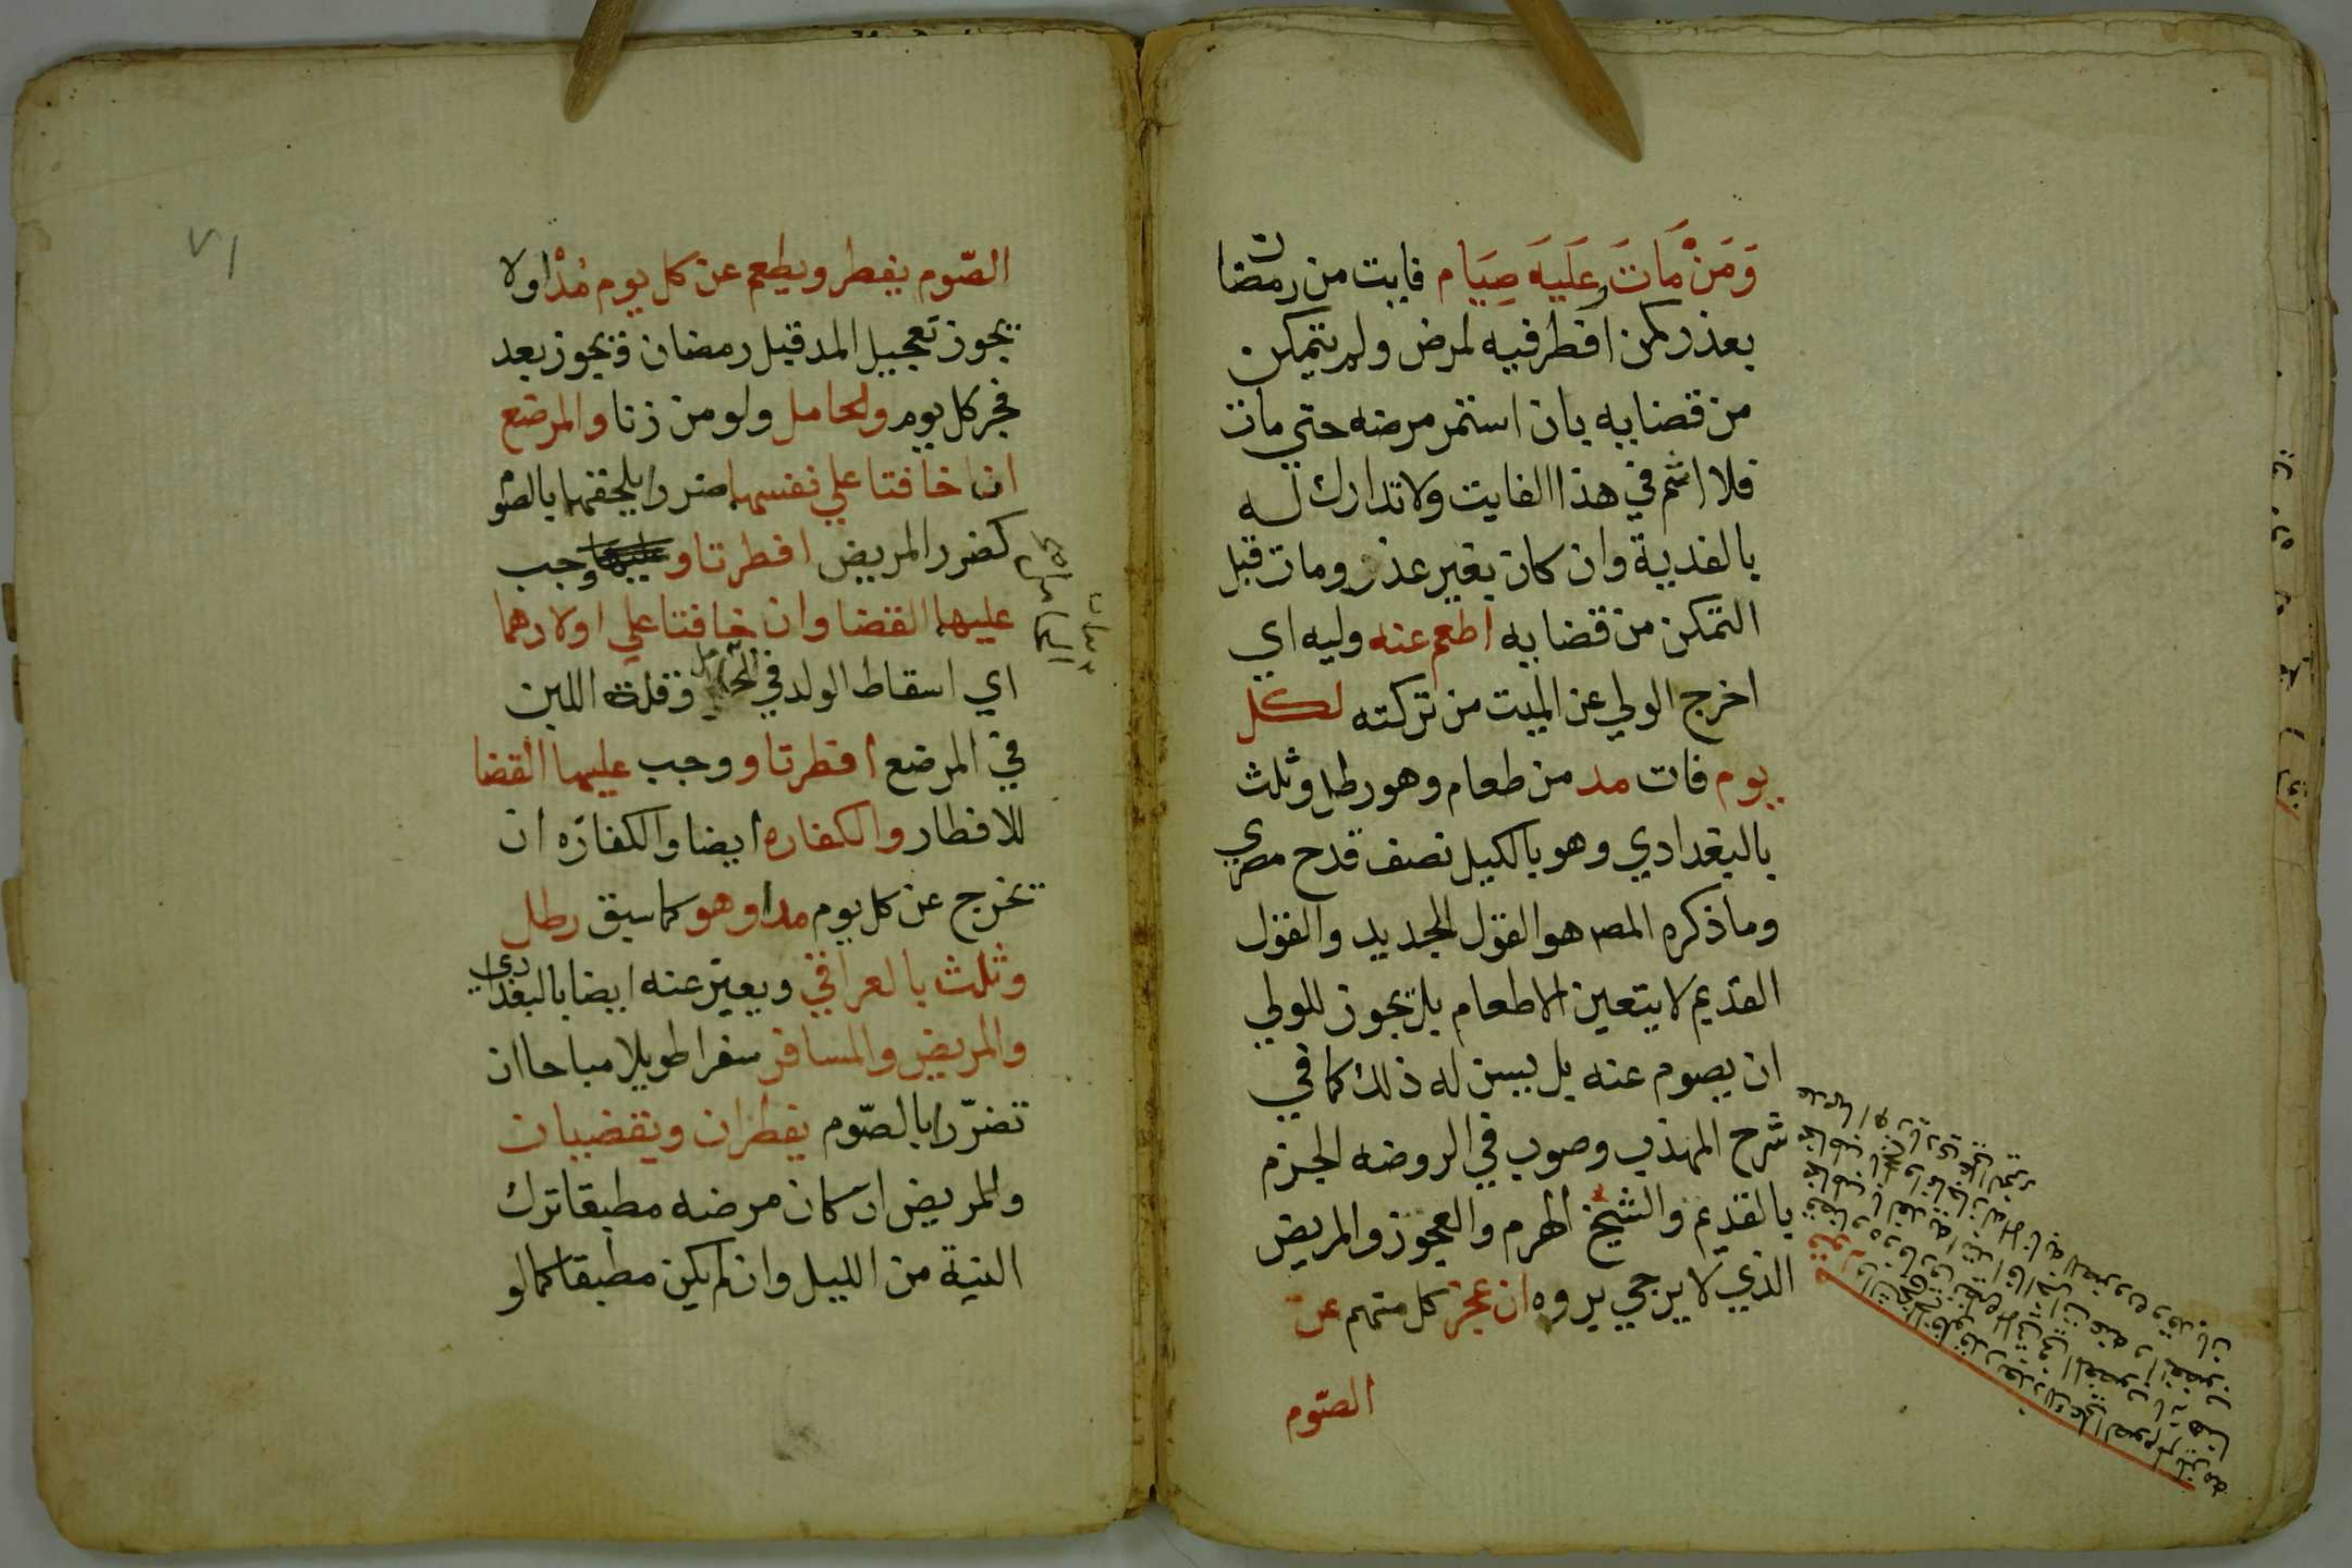 وَمَنْ مَاتَ وعَلَيهَ صِيَام فايت من رمضان
بعذر كمن افطر فيه لمرض ولم يتمكن
من قضايه بان استمر مرضه حتي مات
فلا اثم في هذا الفايت ولا تدارك له
بالفدية وان كان بغير عذر ومات قبل
التمكن من قضايه اطعم عنه وليه اي
اخرج الولي عن الميت من تركته لكل
يوم فات مد من طعام وهو رطل وثلث
بالبغدادي وهو بالكيل نصف قدح مصري
وما ذكره المصـ هو القول الجديد والقول
القديم لا يتعين الاطعام بل يجوز للولي
ان يصوم عنه بل يسن له ذلك كما في
شرح المهذب وصوب في الروضه الجزم
بالقديم والشيخ الهرم والعجوز والمريض
الذي لا يرجي بروه ان عجز كل منهم عن
الصّوم
٧١
الصّوم يفطر ويطعم عن كل يوم مُدْا ولا
يجوز تعجيل المد قبل رمضان ويجوز بعد
فجر كل يوم والحامل ولو من زنا والمرضع
ان خافتا علي نفسهما ضررا يلحقهما بالصوم
كضرر المريض افطرتا و عليهما وجب
عليهما القضا وان خافتا علي اولادهما
اي اسقاط الولد في الحامل وقلة اللبن
في المرضع افطرتا و وجب عليهما القضا
للافطار والكفاره ايضا والكفارّه ان
تخرج عن كل يوم مدا وهو كما سبق رطل
وثلث بالعراقي ويعبر عنه ايضا بالبغدادي
والمريض والمسافر سفرا طويلا مباحا ان
تضرّرا بالصّوم يفطران ويقضيان
وللمريض ان كان مرضه مطبقا ترك
النية من الليل وان لم يكن مطبقا كما لو